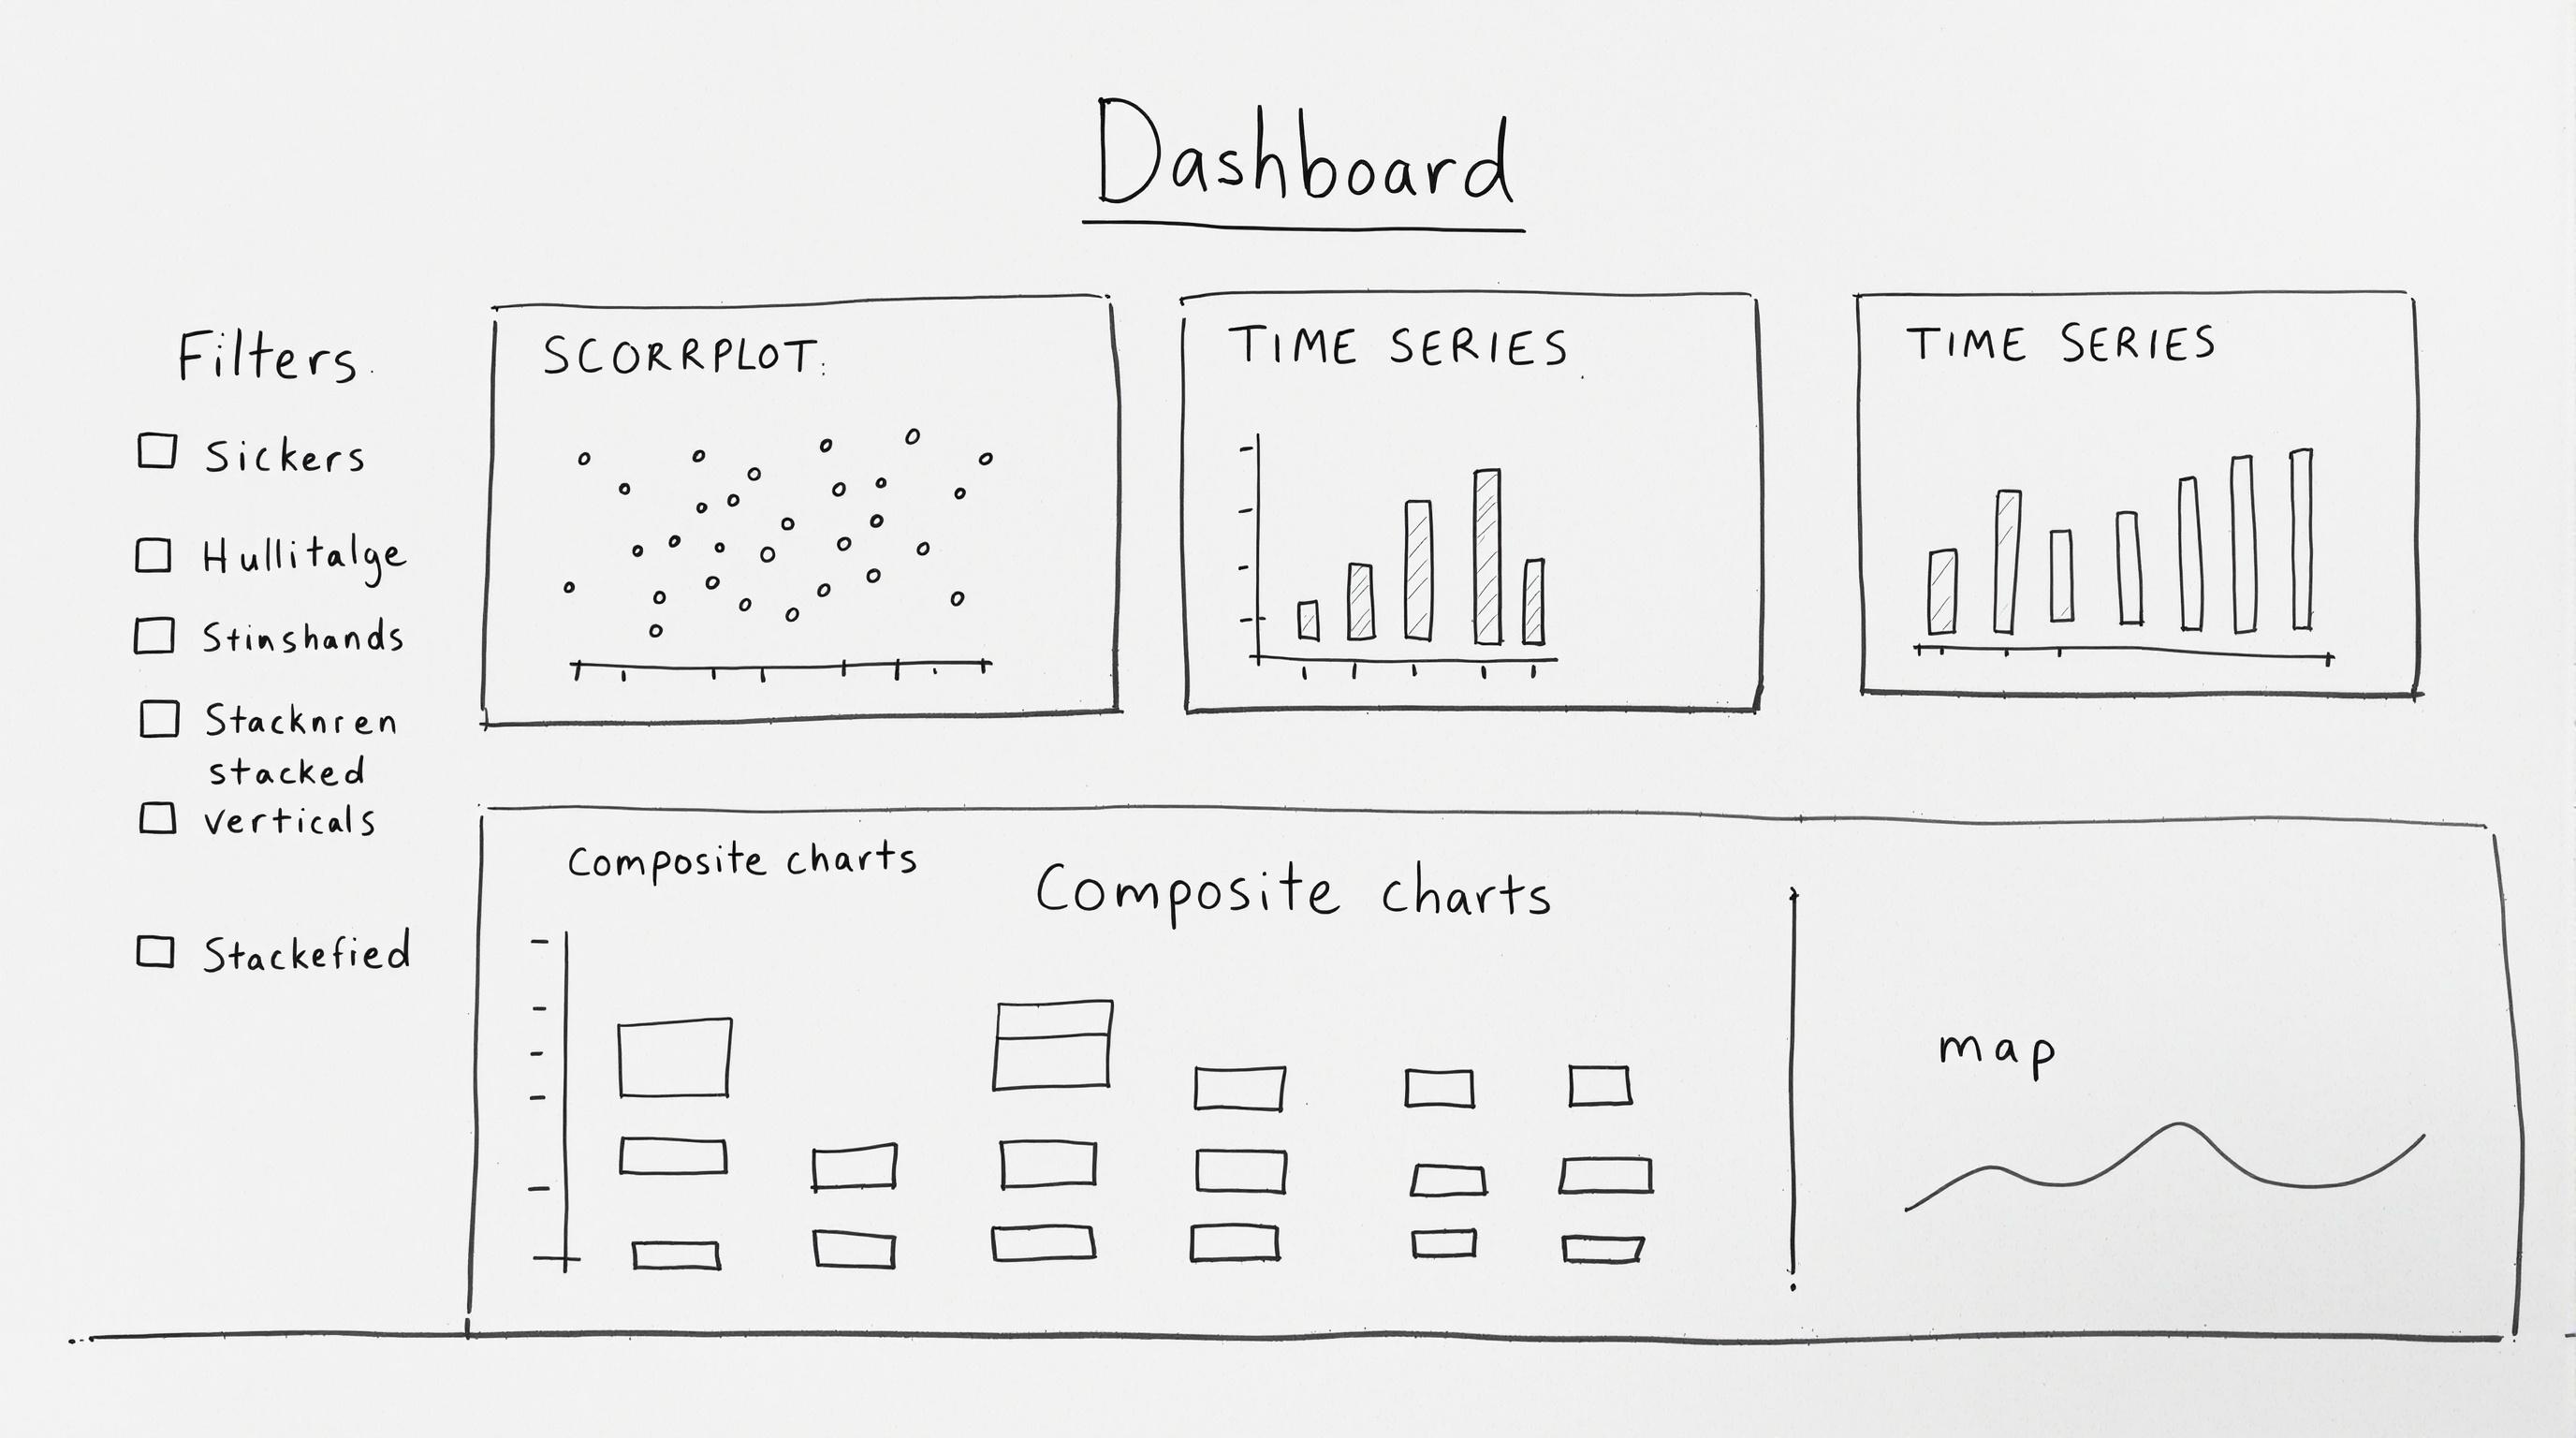 Dashboard
Filters.
Sickers
Hullitalge
Stinshands
Stacknren
stacked
verticals
Stackefied
SCORRPLOT:
TIME SERIES.
TIME SERIES
Composite charts
Composite charts
map